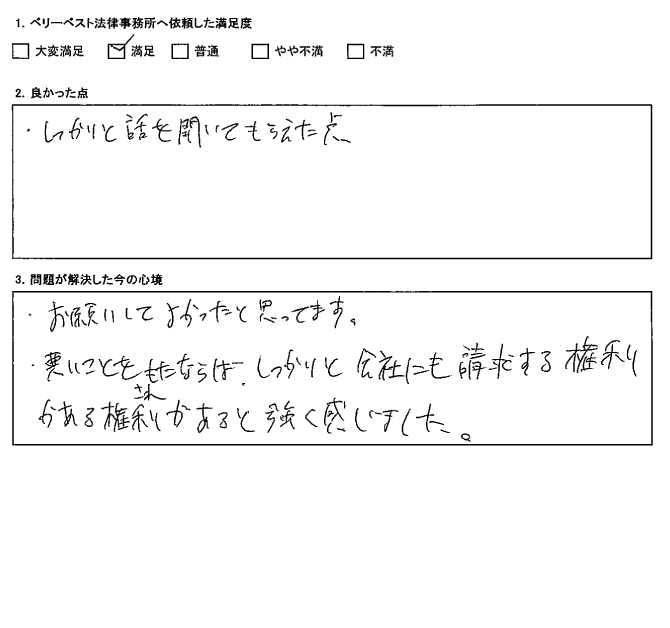 1. ベリーベスト法律事務所へ依頼した満足度
□ 大変満足 ☑ 満足 □ 普通 □ やや不満 □ 不満
2. 良かった点
・しっかりと話を聞いてもらえた点
3. 問題が解決した今の心境
・お願いしてよかったと思ってます。
・悪いことをもたならば、しっかりと会社にも請求する権利
され
がある権利があると強く感じました。